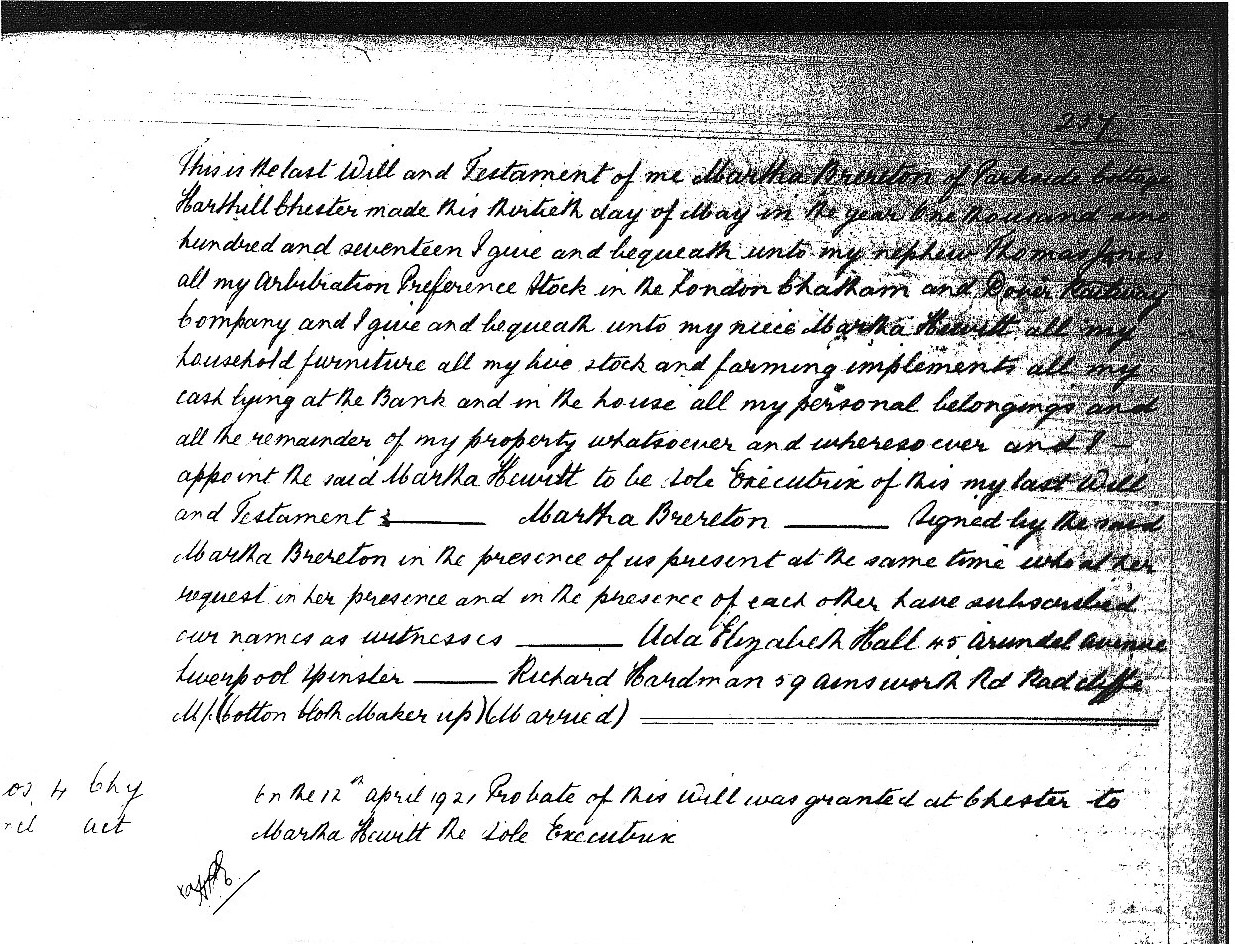 257
This is the last Will and Testament of me Martha Brereton of Parkside Cottage
Harthill Chester made this thirtieth day of May in the year One thousand nine
hundred and seventeen I give and bequeath unto my nephew Thomas Jones
all my Arbitration Preference Stock in the London Chatham and Dover Railway
Company and I give and bequeath unto my niece Martha Hewitt all my
household furniture all my live stock and farming implements all my
cash lying at the Bank and in the house all my personal belongings and
all the remainder of my property whatsoever and wheresoever and I —
appoint the said Martha Hewitt to be sole Executrix of this my last Will
and Testament :——— Martha Brereton ——— Signed by the said
Martha Brereton in the presence of us present at the same time who at her
request in her presence and in the presence of each other have subscribed
our names as witnesses ——— Ada Elizabeth Hall 45 Arundel Avenue
Liverpool Spinster ——— Richard Hardman 59 Ainsworth Rd Radcliffe
M/. (Cotton Cloth Maker up) (Married)
On the 12th April 1921 Probate of this Will was granted at Chester to
Martha Hewitt the sole Executrix